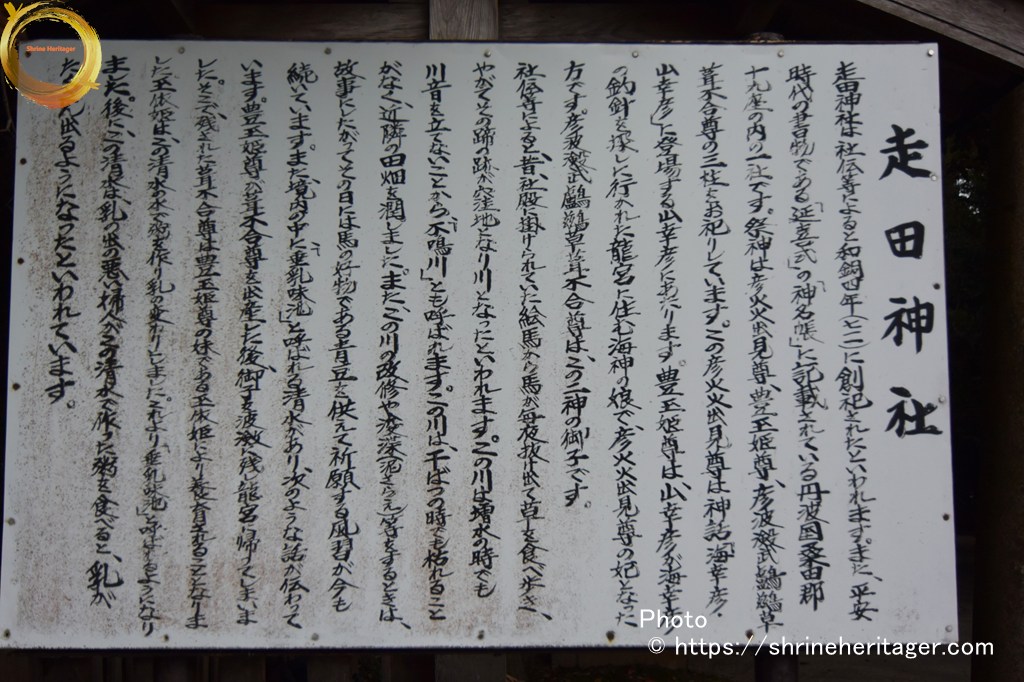 走田神社
走田神社は社伝等によると和銅四年(七一一)に創祀されたといわれます。また、平安
時代の書物である「延喜式」の「神名帳」に記載されている丹波国桑田郡
十九座の内の一社です。祭神は彦火火出見尊、豊玉姫尊、彦波瀲武鸕鶿草
葺不合尊の三柱をお祀りしています。この彦火火出見尊は神話「海幸彦・
山幸彦」に登場する山幸彦にあたります。豊玉姫尊は、山幸彦が海幸彦
の釣針を探しに行かれた龍宮に住む海神の娘で、彦火火出見尊の妃となった
方です。彦波瀲武鸕鶿草葺不合尊は、この二神の御子です。
社伝等によると、昔、社殿に掛けられていた絵馬から馬が毎夜抜け出て草を食べ歩き、
やがてその蹄の跡が窪地となり川となったといわれます。この川は増水の時でも
川音を立てないことから、「不鳴川」とも呼ばれます。この川は、干ばつの時でも枯れること
がなく、近隣の田畑を潤しました。また、この川の改修や浚渫(泥さらえ)等をするときは、
故事にしたがってその日には馬の好物である青豆を供えて祈願する風習が今も
続いています。また、境内の中に「垂乳味池」と呼ばれる清水があり、次のような話が伝わって
います。豊玉姫尊が葺不合尊を出産した後、御子を波瀲に残し龍宮に帰ってしまいま
した。そこで、残された葺不合尊は豊玉姫尊の妹である玉依姫により養育されることとなりま
した。玉依姫は、この清水で粥を作り乳の変わりとしました。これより「垂乳味池」と呼ばれるようになり
ました。後に、この清水は乳の出の悪い婦人がこの清水で作った粥を食べると、乳が
たくさん出るようになったといわれています。
Shrine Heritager
Photo
© https://shrineheritager.com